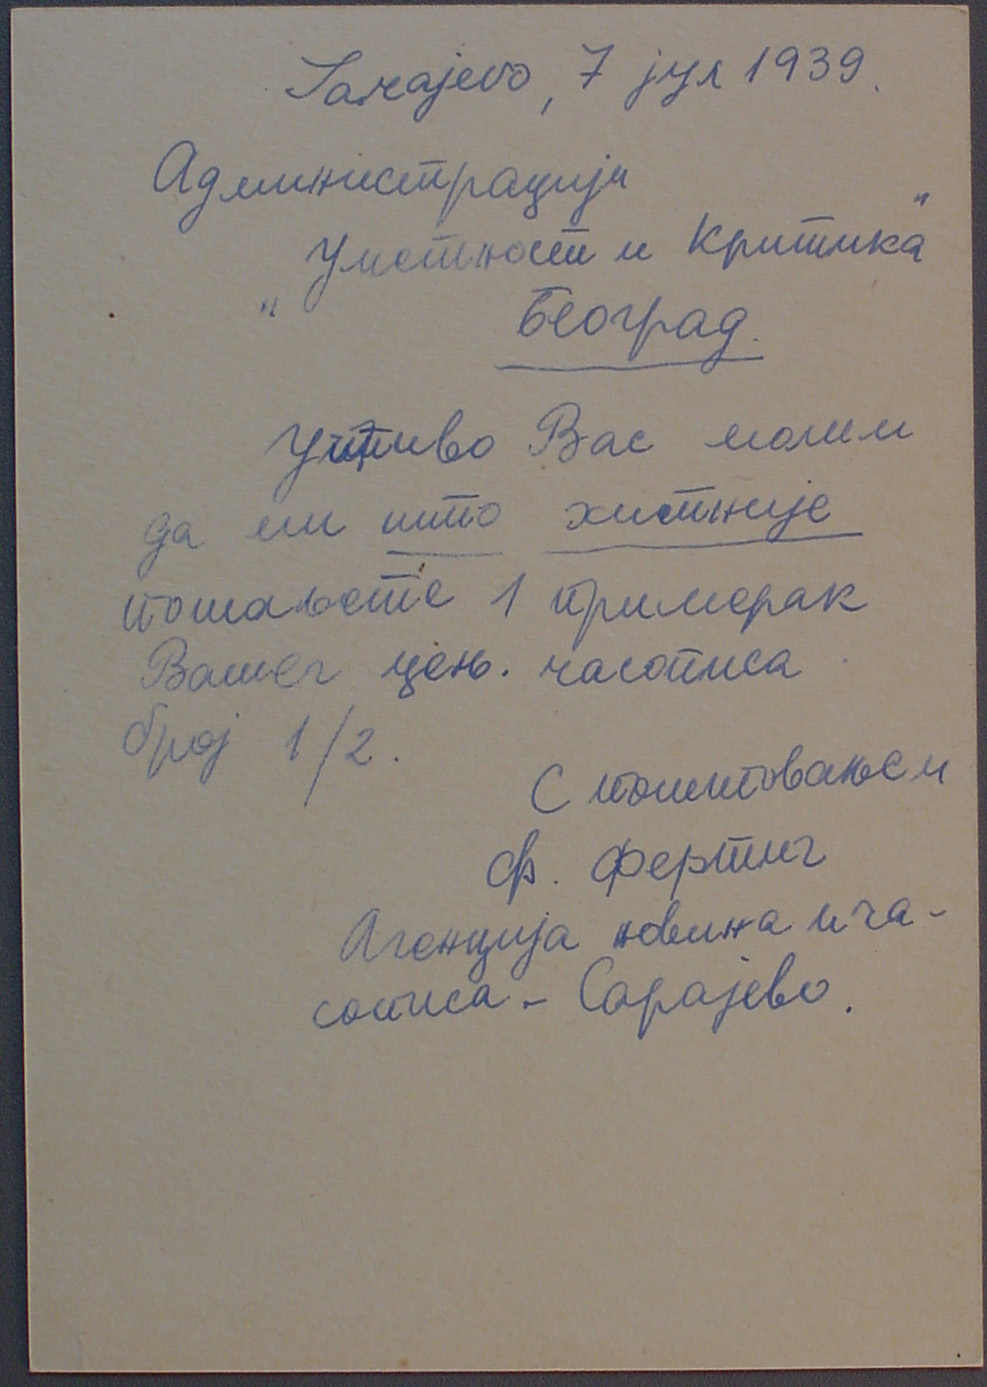 Sarajevo, 7 јул 1939.
Администрацији
„Уметност и Критика"
Београд.
Учтиво Вас молим
да ми што хитније
пошаљете 1 примерак
Вашег цењ. часописа
број 1/2.
С поштовањем
Ф. Фертиг
Агенција новина и ча-
сописа - Сарајево.